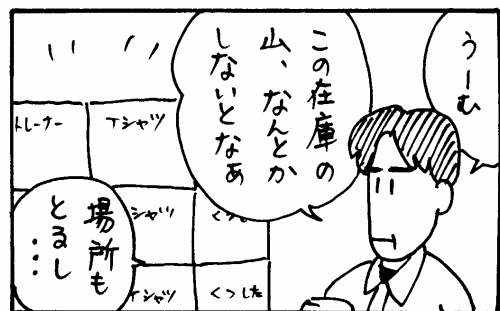 うーむ
この在庫の
山、なんとか
しないとなぁ
場所も
とるし
・・・
トレーナー
Tシャツ
シャツ
Tシャツ
くつした